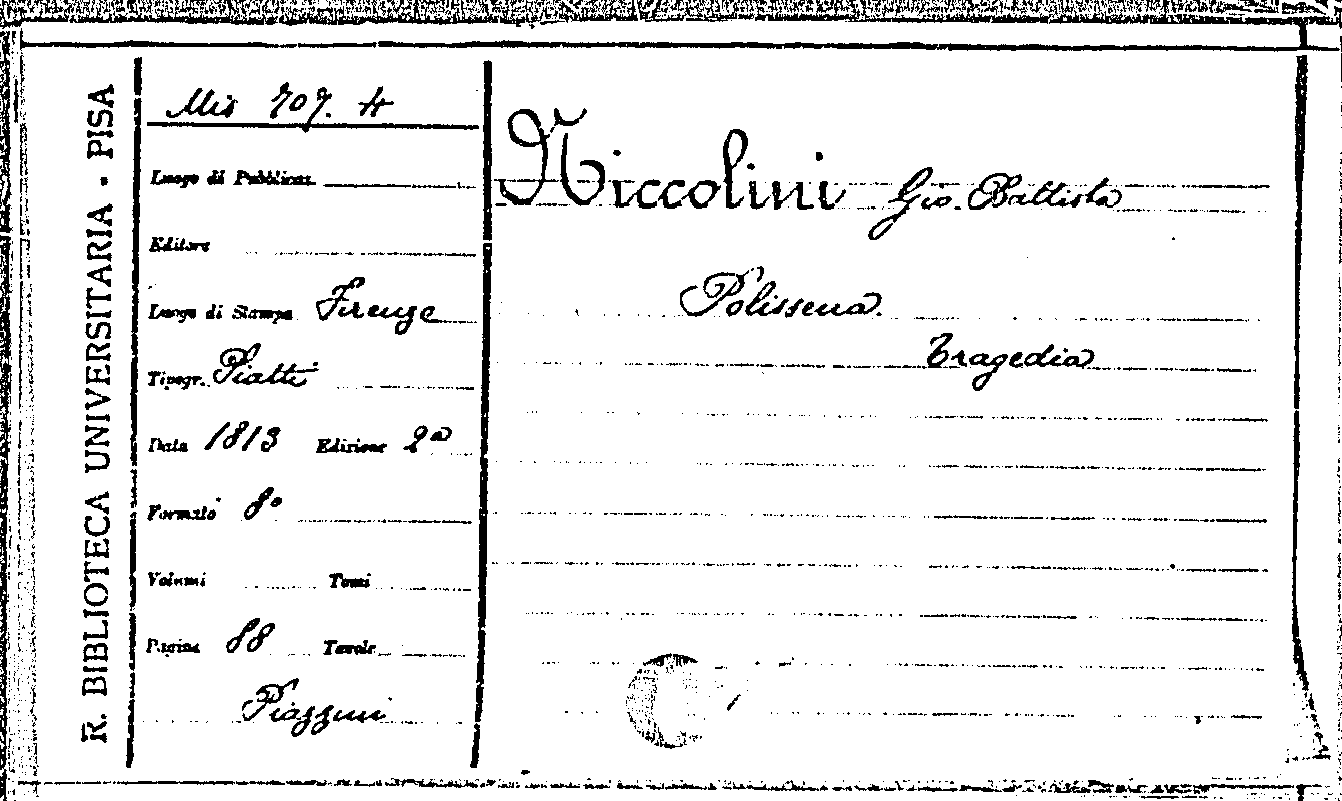 R. BIBLIOTECA UNIVERSITARIA - PISA
Mis 707. 4
Luogo di Pubblicaz.
Editore
Luogo di Stampa Firenze
Tipogr. Piatti
Data 1813 Edizione 2ª
Formato 8°
Volumi Tomi
Pagine 88 Tavole
Piazzini
Niccolini Gio. Battista
Polissena.
Tragedia